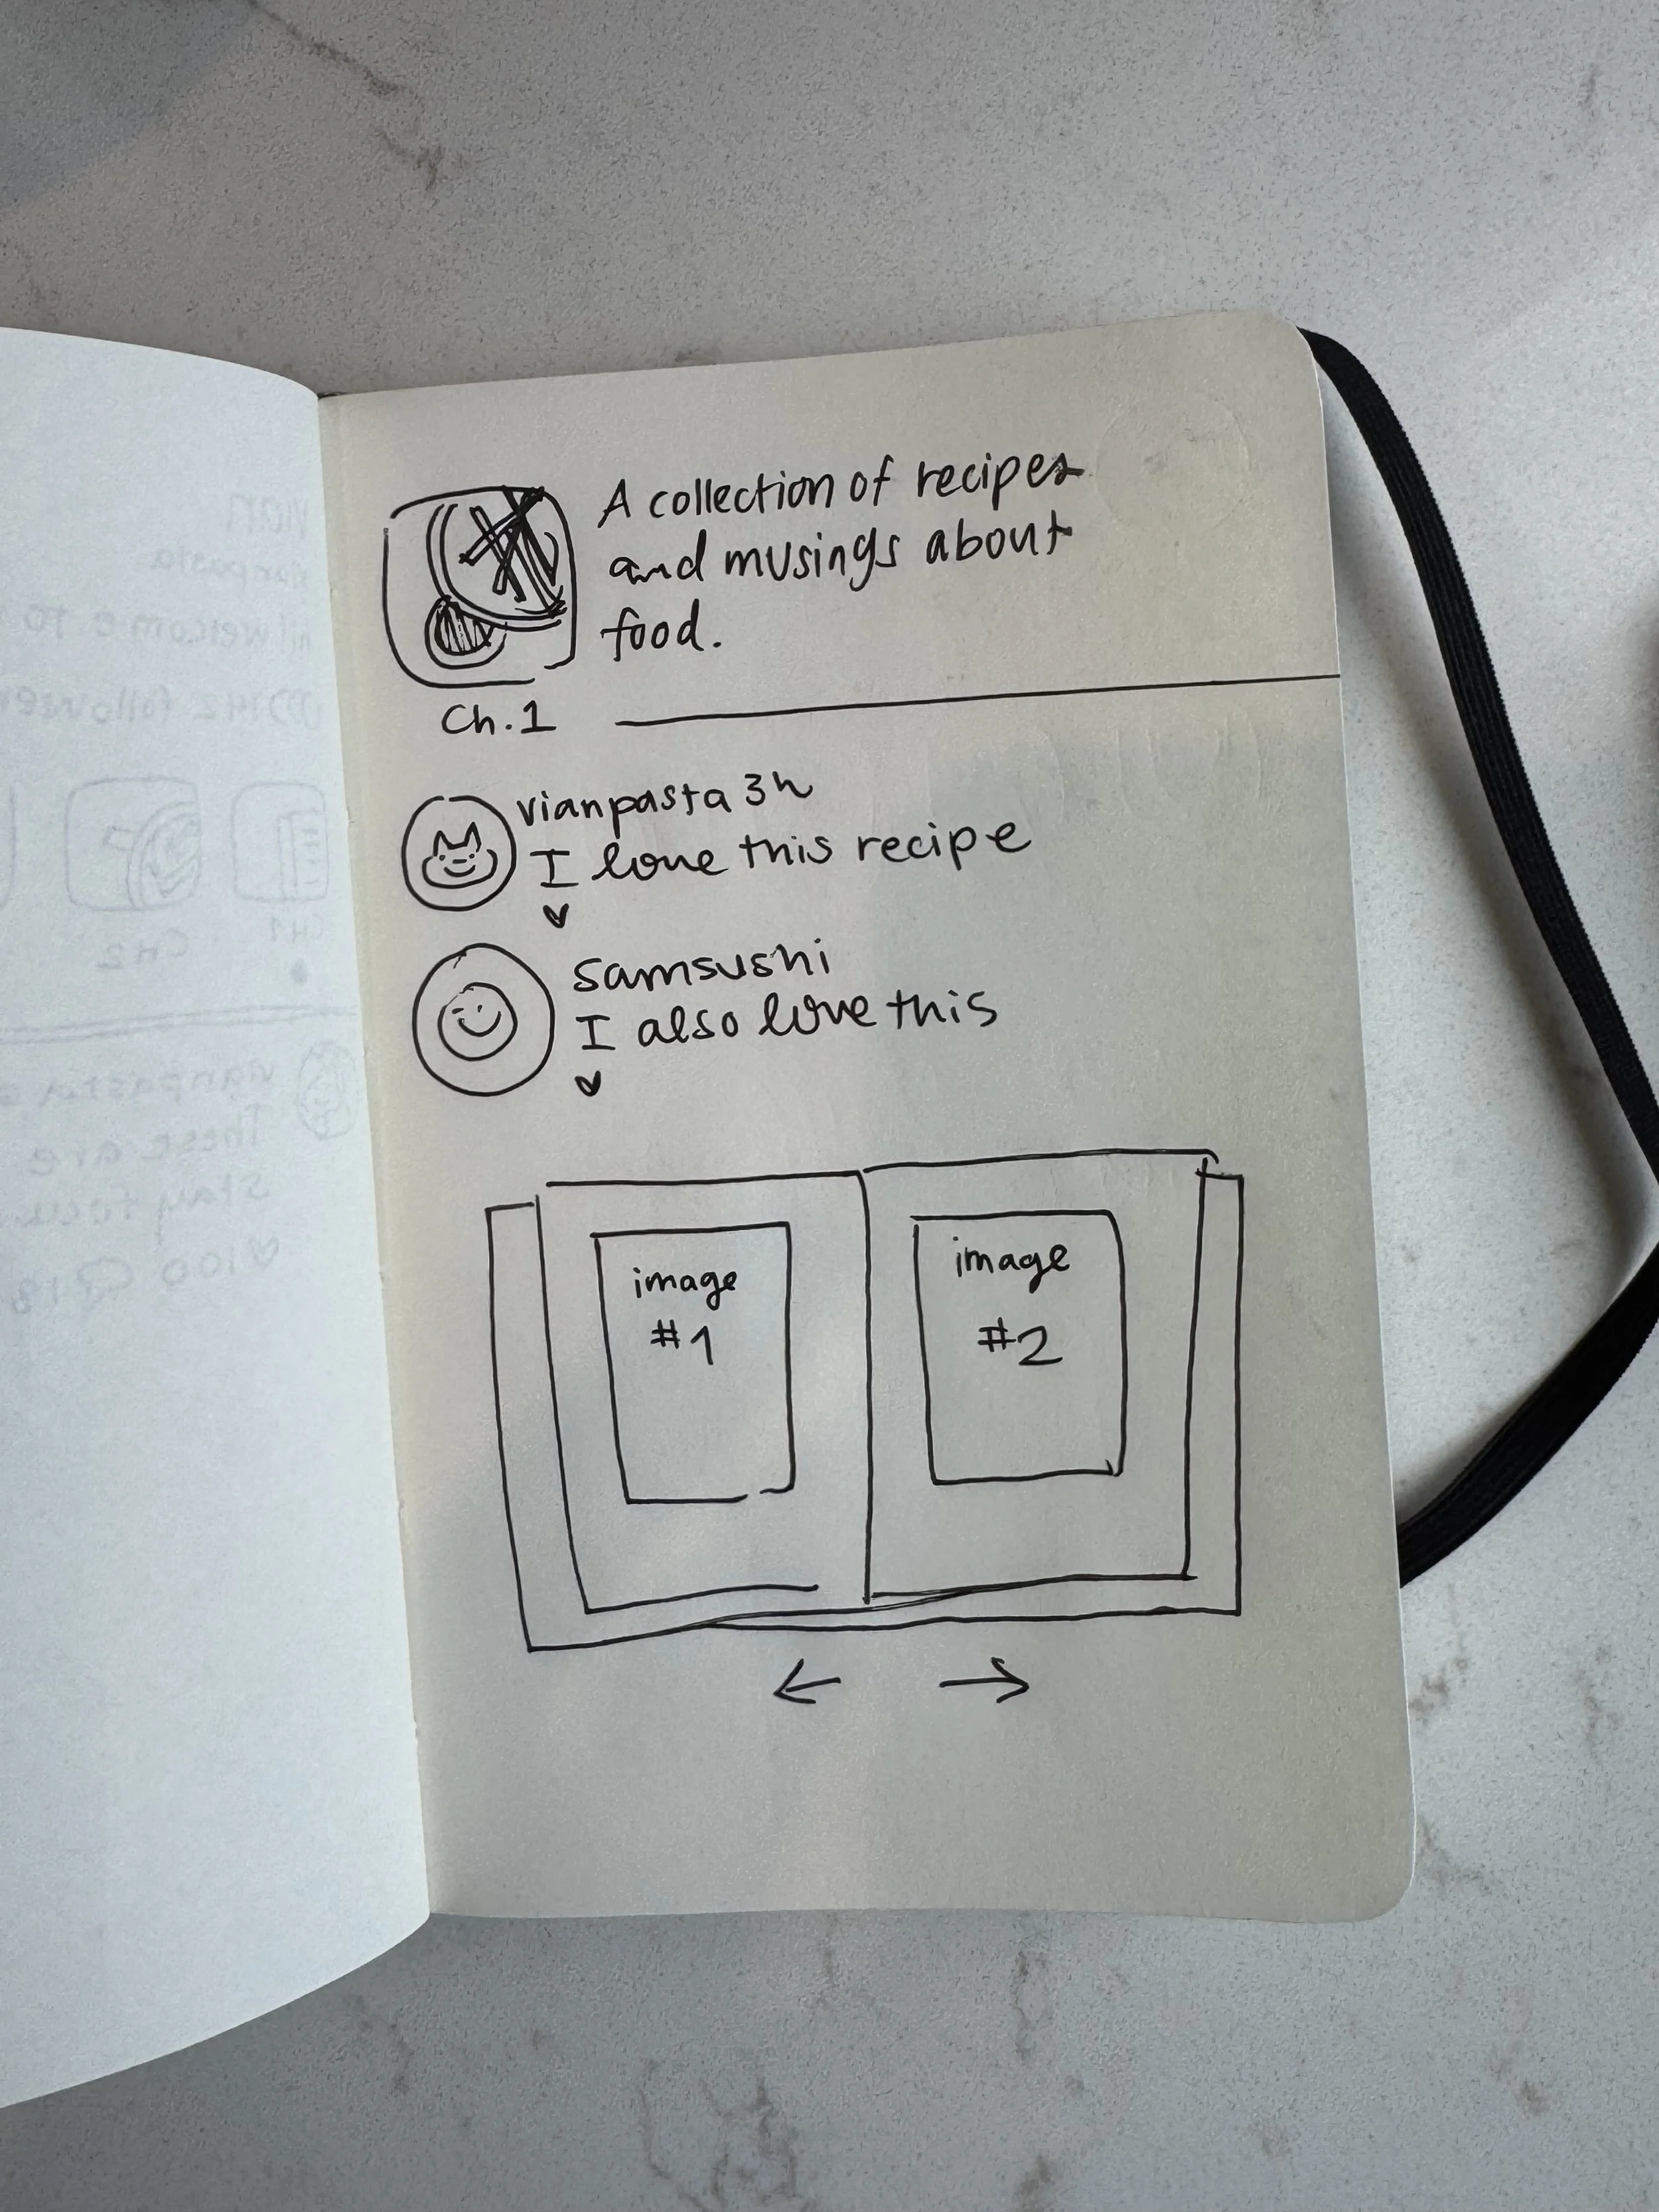 A collection of recipes
and musings about
food.
Ch.1
vianpasta 3h
I love this recipe
samsushi
I also love this
image
#1
image
#2